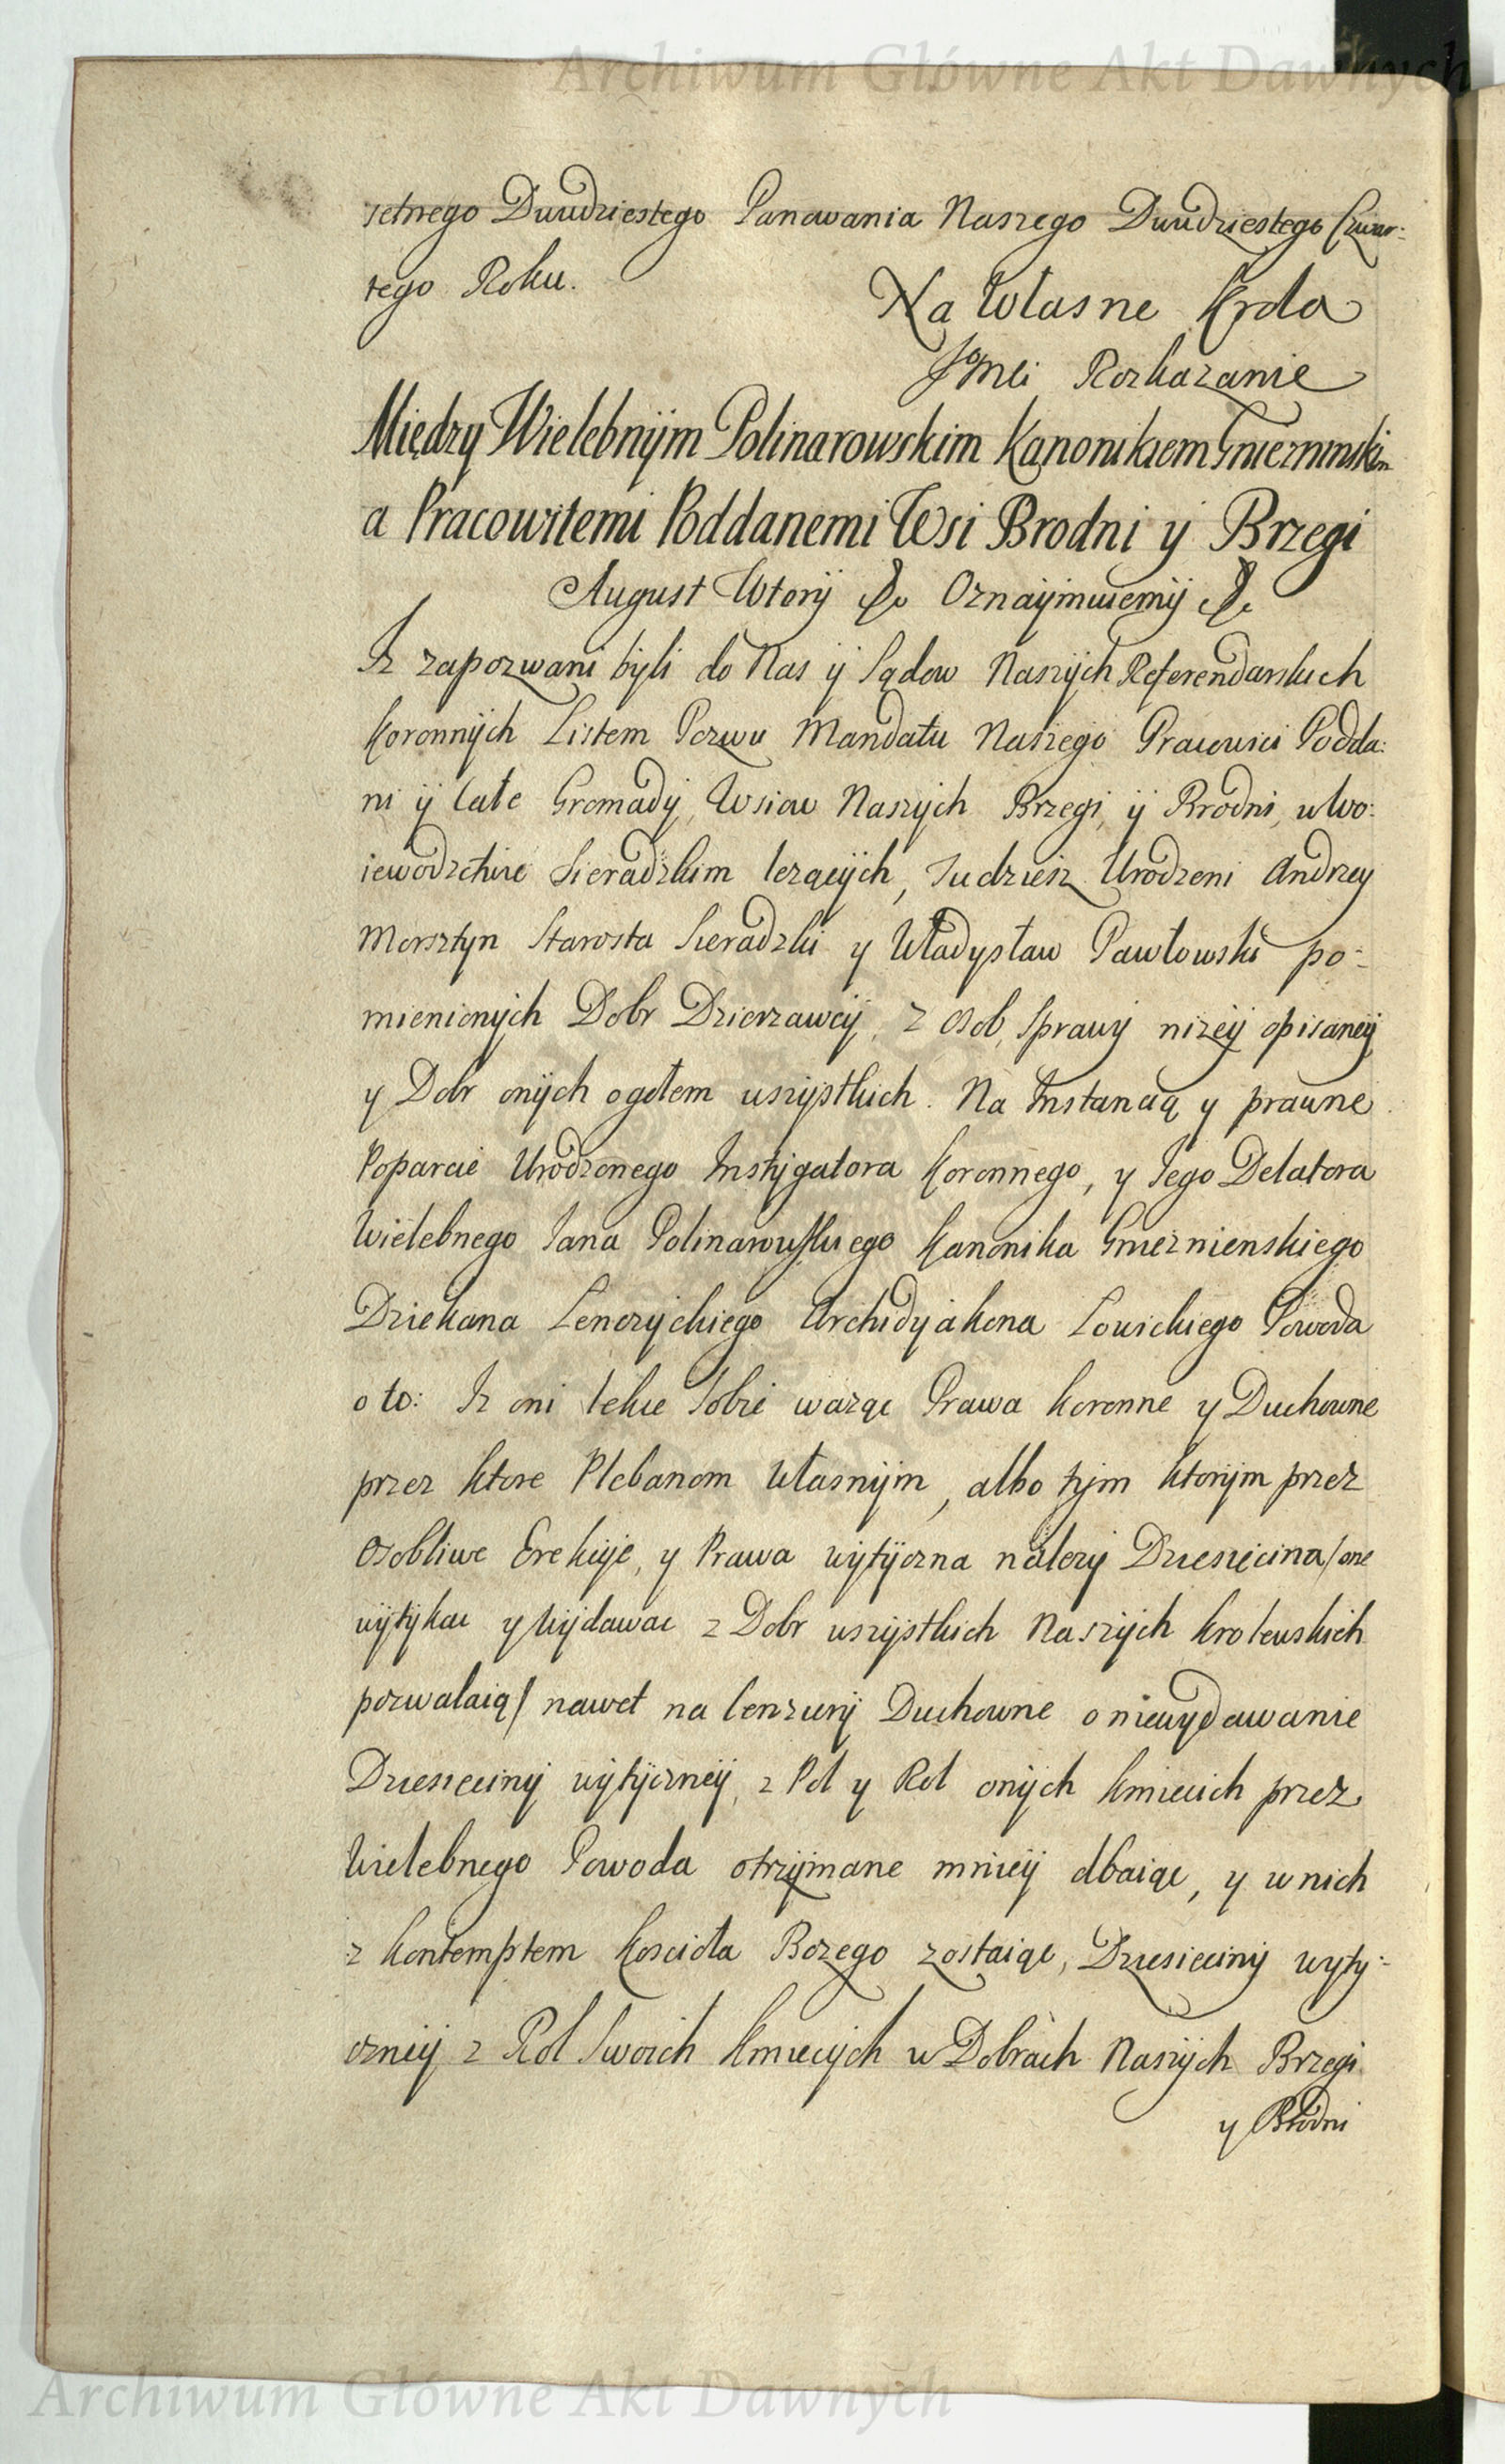 Archiwum Główne Akt Dawnych
setnego Dwudziestego Panowania Naszego Dwudziestego Czwar:
tego Roku.
Na Własne Krola
JoMci Rozkazanie
Między Wielebnÿm Polinarowskim Kanonikiem Gniezninskim
a Pracowitemi Poddanemi Wsi Brodni y Brzegi
August Wtorÿ &c Oznaÿmuiemÿ &c
Iz zapozwani bÿli do Nas ÿ Sądow Naszÿch Referendarskich
Koronnÿch Listem Pozwu Mandatu Naszego Pracowici Podda:
ni ÿ Całe Gromadÿ, Wsiow Naszÿch Brzegi, ÿ Brodni, w Wo:
iewodztwie Sieradzkim lezącÿch, Tudziesz Urodzeni Andrzey
Morsztyn Starosta Sieradzki y Władysław Pawłowski po:
mienionÿch Dobr Dzierzawcÿ, z Osob, Sprawÿ nizeÿ opisaneÿ
y Dobr onÿch ogołem wszÿstkich. Na Instancią y prawne
Poparcie Urodzonego Instÿgatora Koronnego, y Jego Delatora
Wielebnego Jana Polinarowskiego Kanonika Gnieznienskiego
Dziekana Lenczÿckiego Archidÿakona Lowickiego Powoda
o to: Iz oni lekce Sobie waząc Prawa Koronne y Duchowne
przez ktore Plebanom Własnÿm, albo tÿm ktorÿm przez
Osobliwe Erekcÿe, y Prawa wÿtÿczna nalezÿ Dziesięcina/one
wÿtÿkac y Wÿdawac z Dobr wszÿstkich Naszÿch Krolewskich
pozwalaią/ nawet na Cenzurÿ Duchowne o niewydawanie
Dziesięcinÿ wÿtÿczneÿ, z Pol y Rol onÿch Kmiecich przez
Wielebnego Powoda otrzÿmane mnieÿ dbaiąc, y w nich
z Kontemptem Koscioła Bozego zostaiąc, Dziesięcinÿ wyty:
czneÿ z Rol Swoich Kmiecÿch w Dobrach Naszÿch Brzegi
y Brodni
Archiwum Główne Akt Dawnych